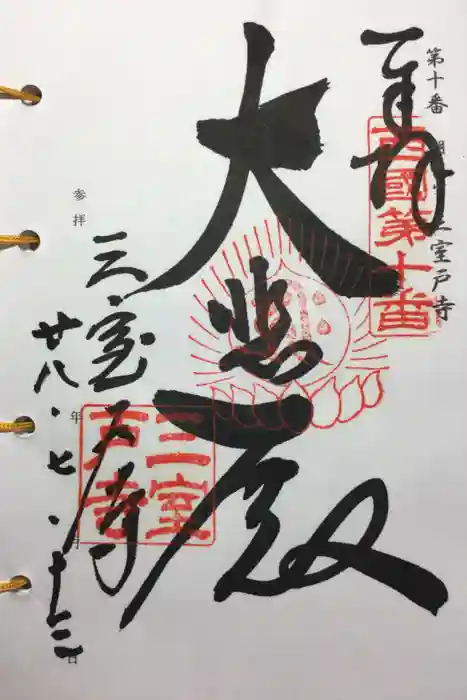 第十番 明星山三室戸寺
奉拝
西國第十番
大悲殿
参拝 年 月 日
三室戸寺
三室戸寺
廿八・七・十三